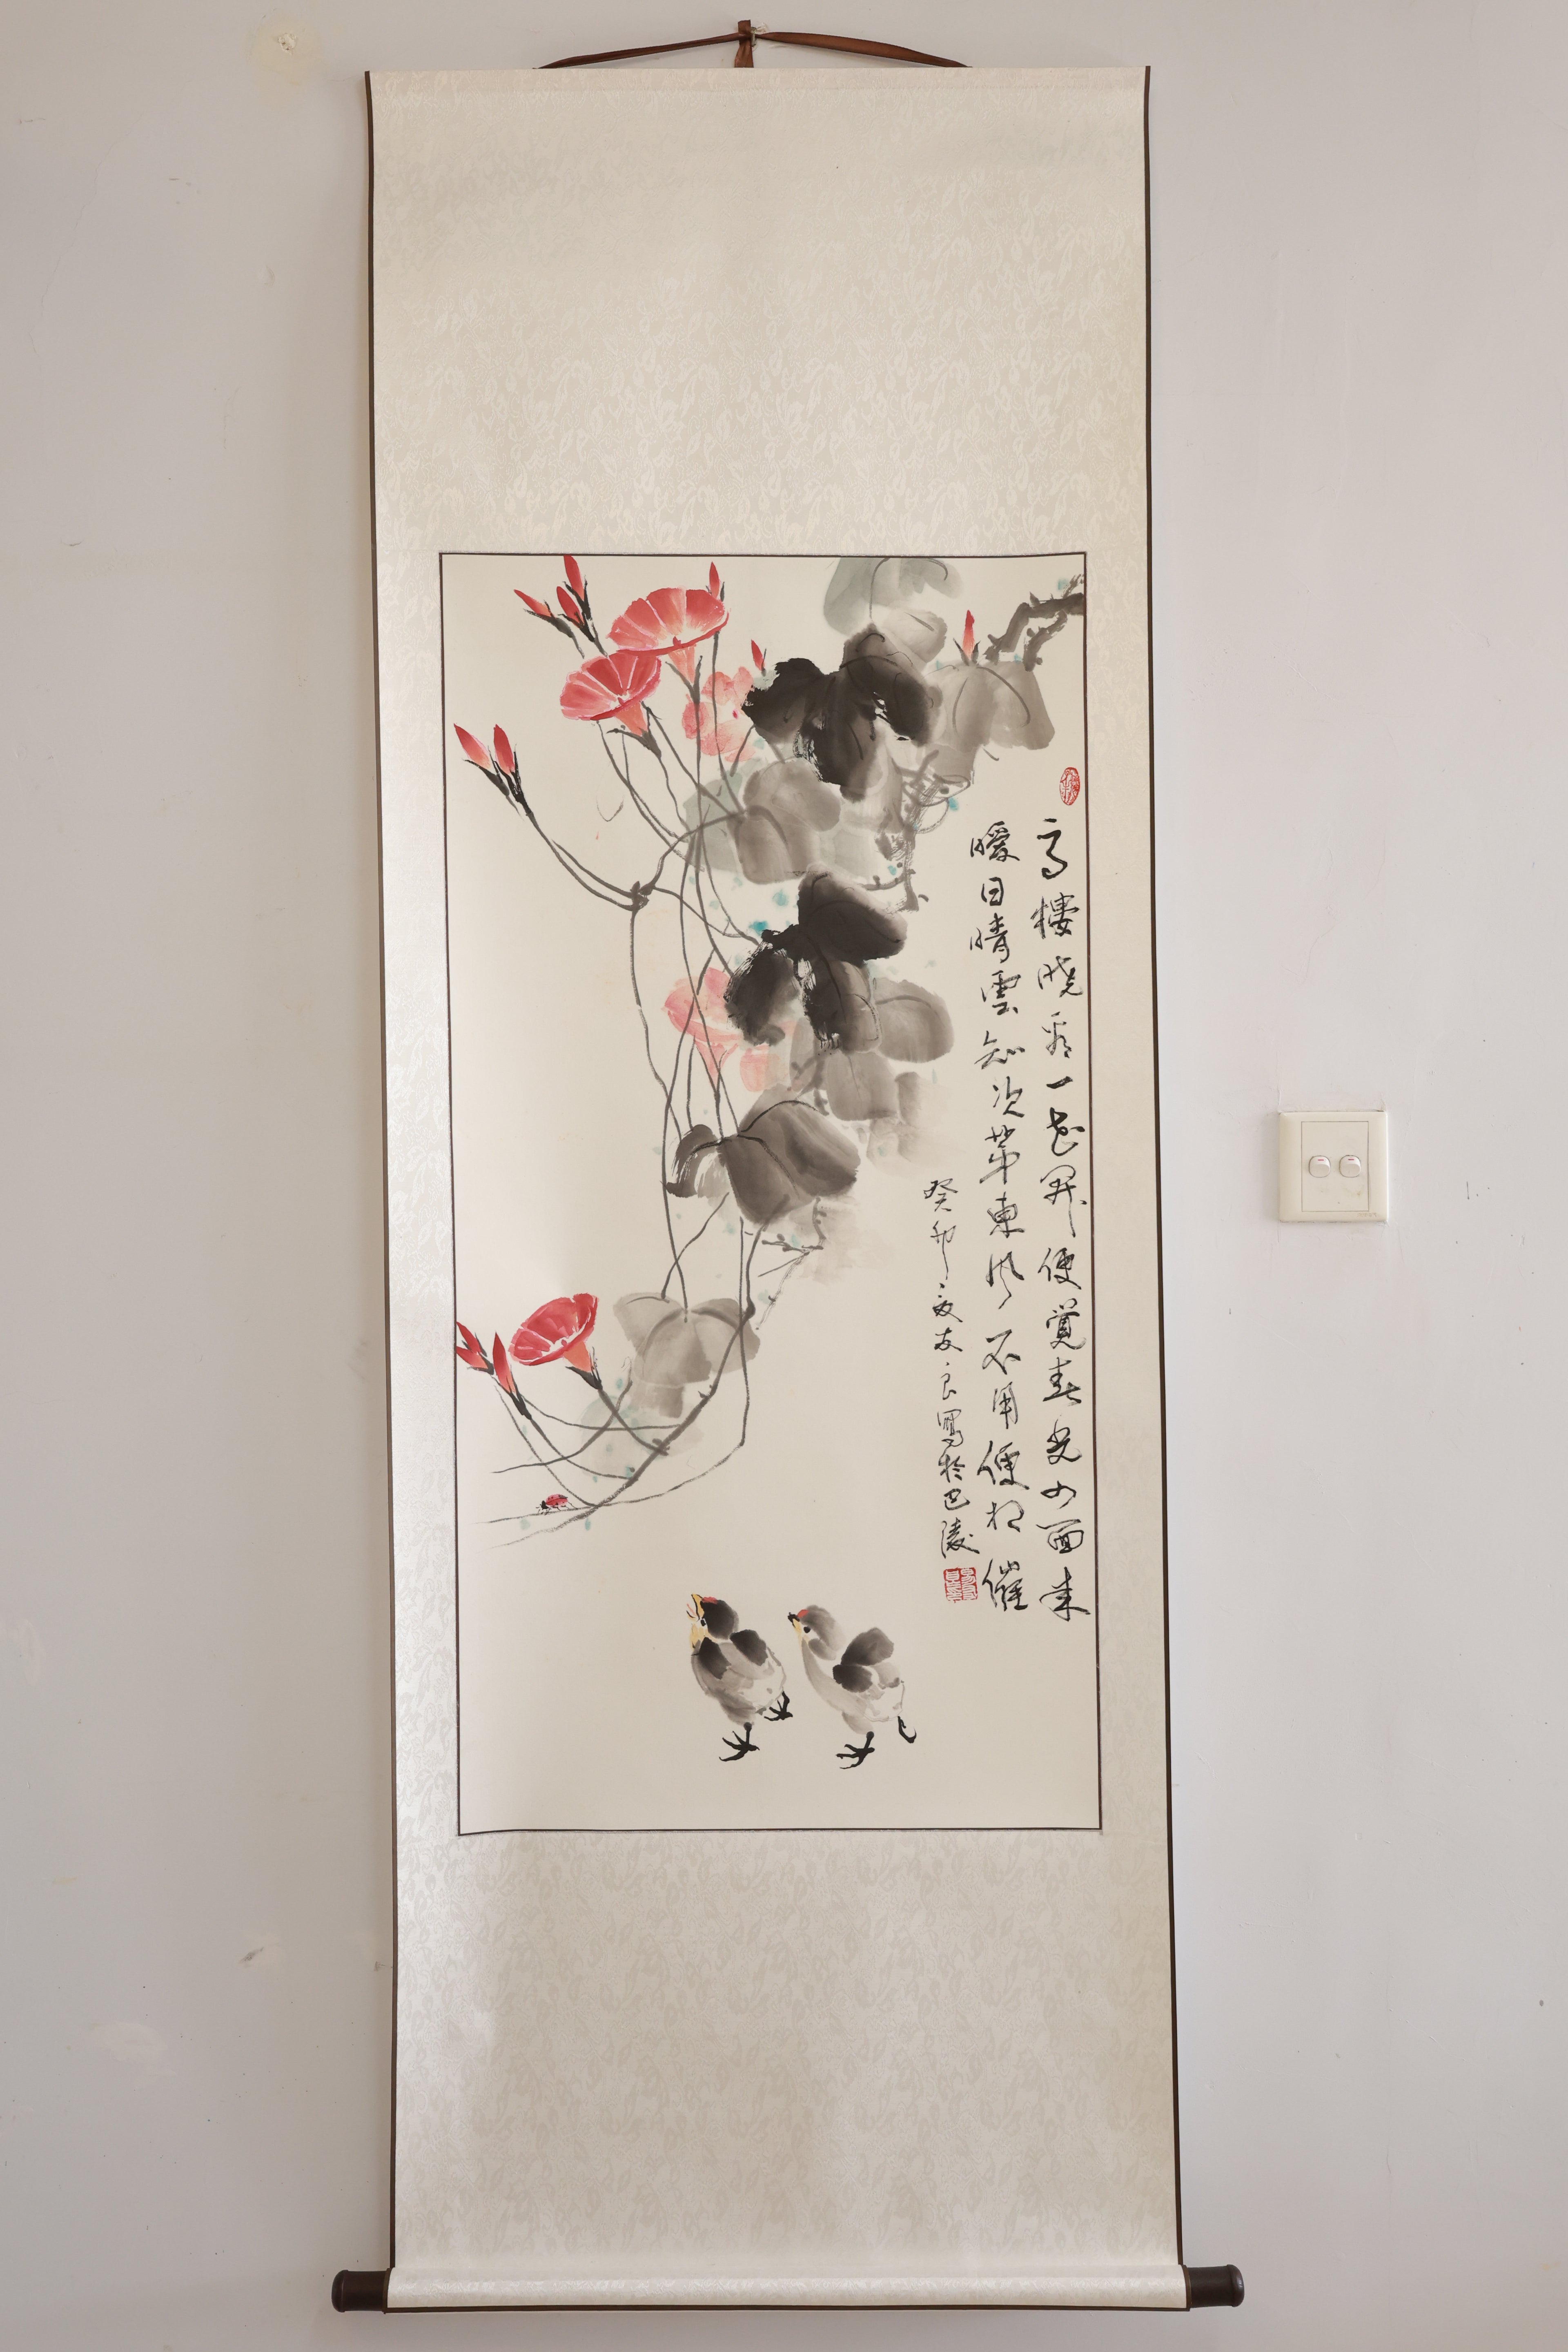 高樓曉看一花開便覺春光四面來
暖日晴雲知次第東風不用便相催
癸卯夏友良寫於巴陵